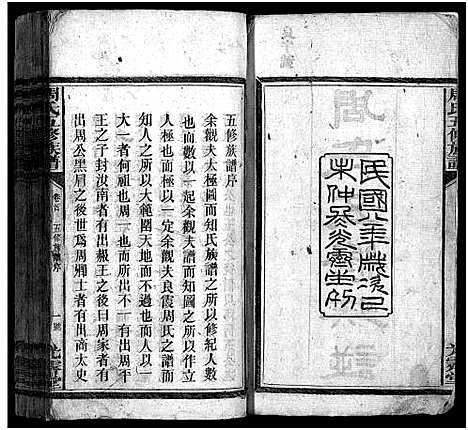 周氏五修族譜
民國八年歲次己
未仲冬光霽堂刊
周氏五修族譜
卷首
五修族譜序
余觀夫太極圖而知氏族譜之所以修紀人數
也而數以一起余觀夫譜而知圖之所以建立
人極也而極以一定余觀夫良霞周氏之譜而
知人之所以大範圍天地而不過也而人以一
大一者何祖也周一也而有出周平
王之子封汝南者有出赧王之後曰周家者有
出周公黑肩之後世爲周卿士者有出商太史